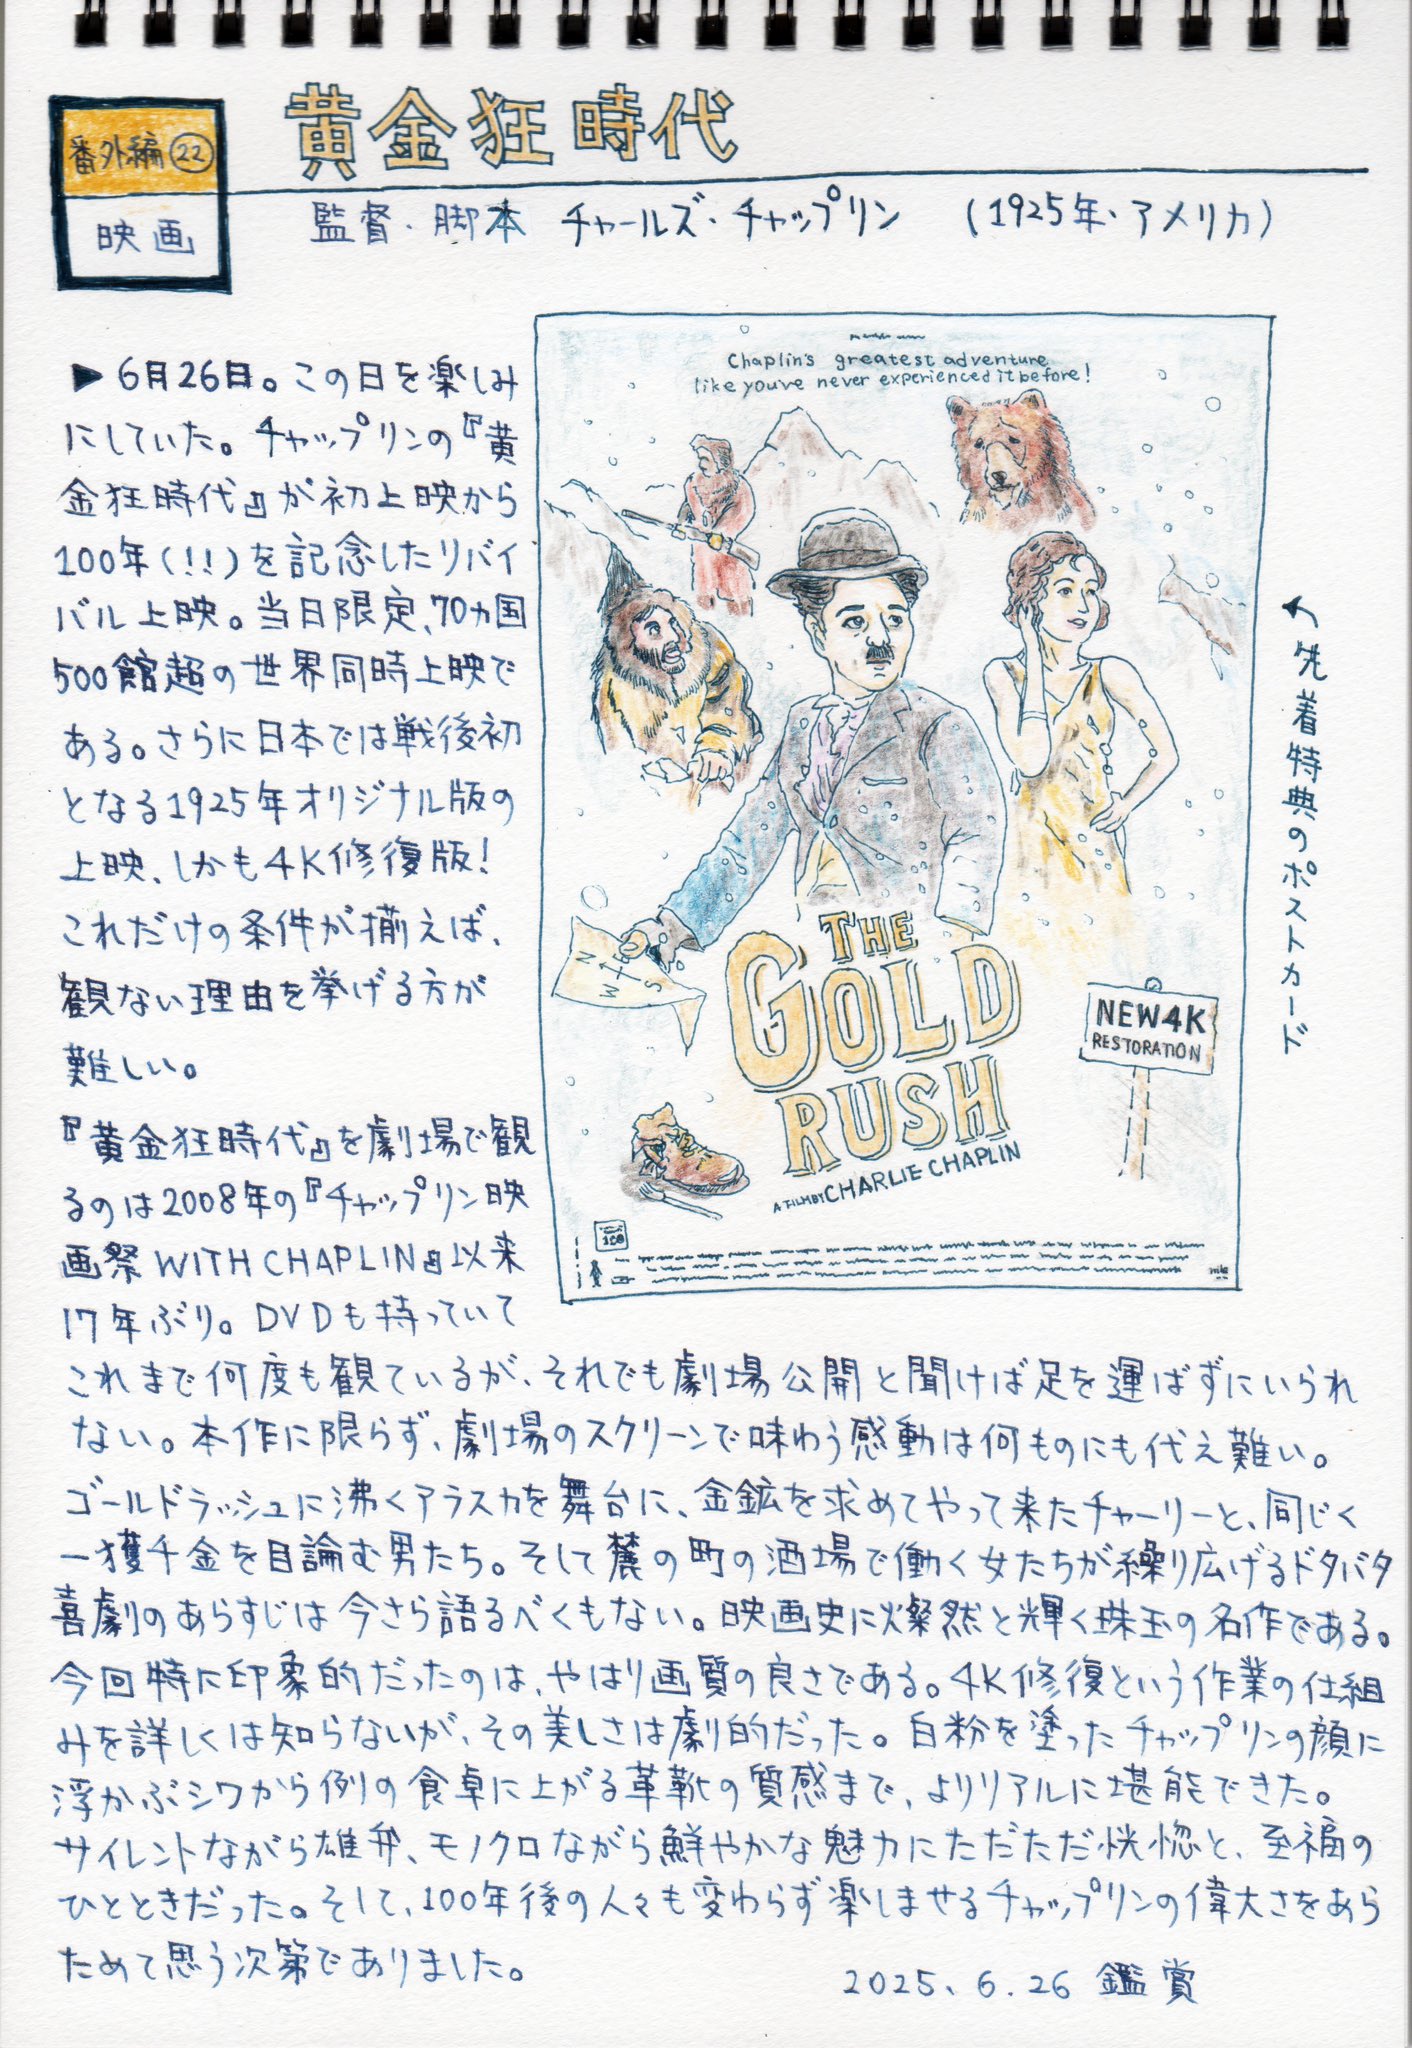 番外編㉒
映画
黄金狂時代
監督・脚本 チャールズ・チャップリン (1925年・アメリカ)
▶6月26日。この日を楽しみ
にしていた。チャップリンの『黄
金狂時代』が初上映から
100年(!!)を記念したリバイ
バル上映。当日限定、70ヵ国
500館超の世界同時上映で
ある。さらに日本では戦後初
となる1925年オリジナル版の
上映、しかも4K修復版!
これだけの条件が揃えば、
観ない理由を挙げる方が
難しい。
『黄金狂時代』を劇場で観
るのは2008年の『チャップリン映
画祭 WITH CHAPLIN』以来
17年ぶり。DVDも持っていて
これまで何度も観ているが、それでも劇場公開と聞けば足を運ばずにいられ
ない。本作に限らず、劇場のスクリーンで味わう感動は何ものにも代え難い。
ゴールドラッシュに沸くアラスカを舞台に、金鉱を求めてやって来たチャーリーと、同じく
一獲千金を目論む男たち。そして麓の町の酒場で働く女たちが繰り広げるドタバタ
喜劇のあらすじは今さら語るべくもない。映画史に燦然と輝く珠玉の名作である。
今回特に印象的だったのは、やはり画質の良さである。4K修復という作業の仕組
みを詳しくは知らないが、その美しさは劇的だった。白粉を塗ったチャップリンの顔に
浮かぶシワから例の食卓に上がる革靴の質感まで、よりリアルに堪能できた。
サイレントながら雄弁、モノクロながら鮮やかな魅力にただただ恍惚と、至福の
ひとときだった。そして、100年後の人々も変わらず楽しませるチャップリンの偉大さをあら
ためて思う次第でありました。
2025.6.26 鑑賞
Chaplin's greatest adventure
like you've never experienced it before!
N
E
W
S
THE
GOLD
RUSH
A FILM BY CHARLIE CHAPLIN
NEW4K
RESTORATION
100
↖先着特典のポストカード